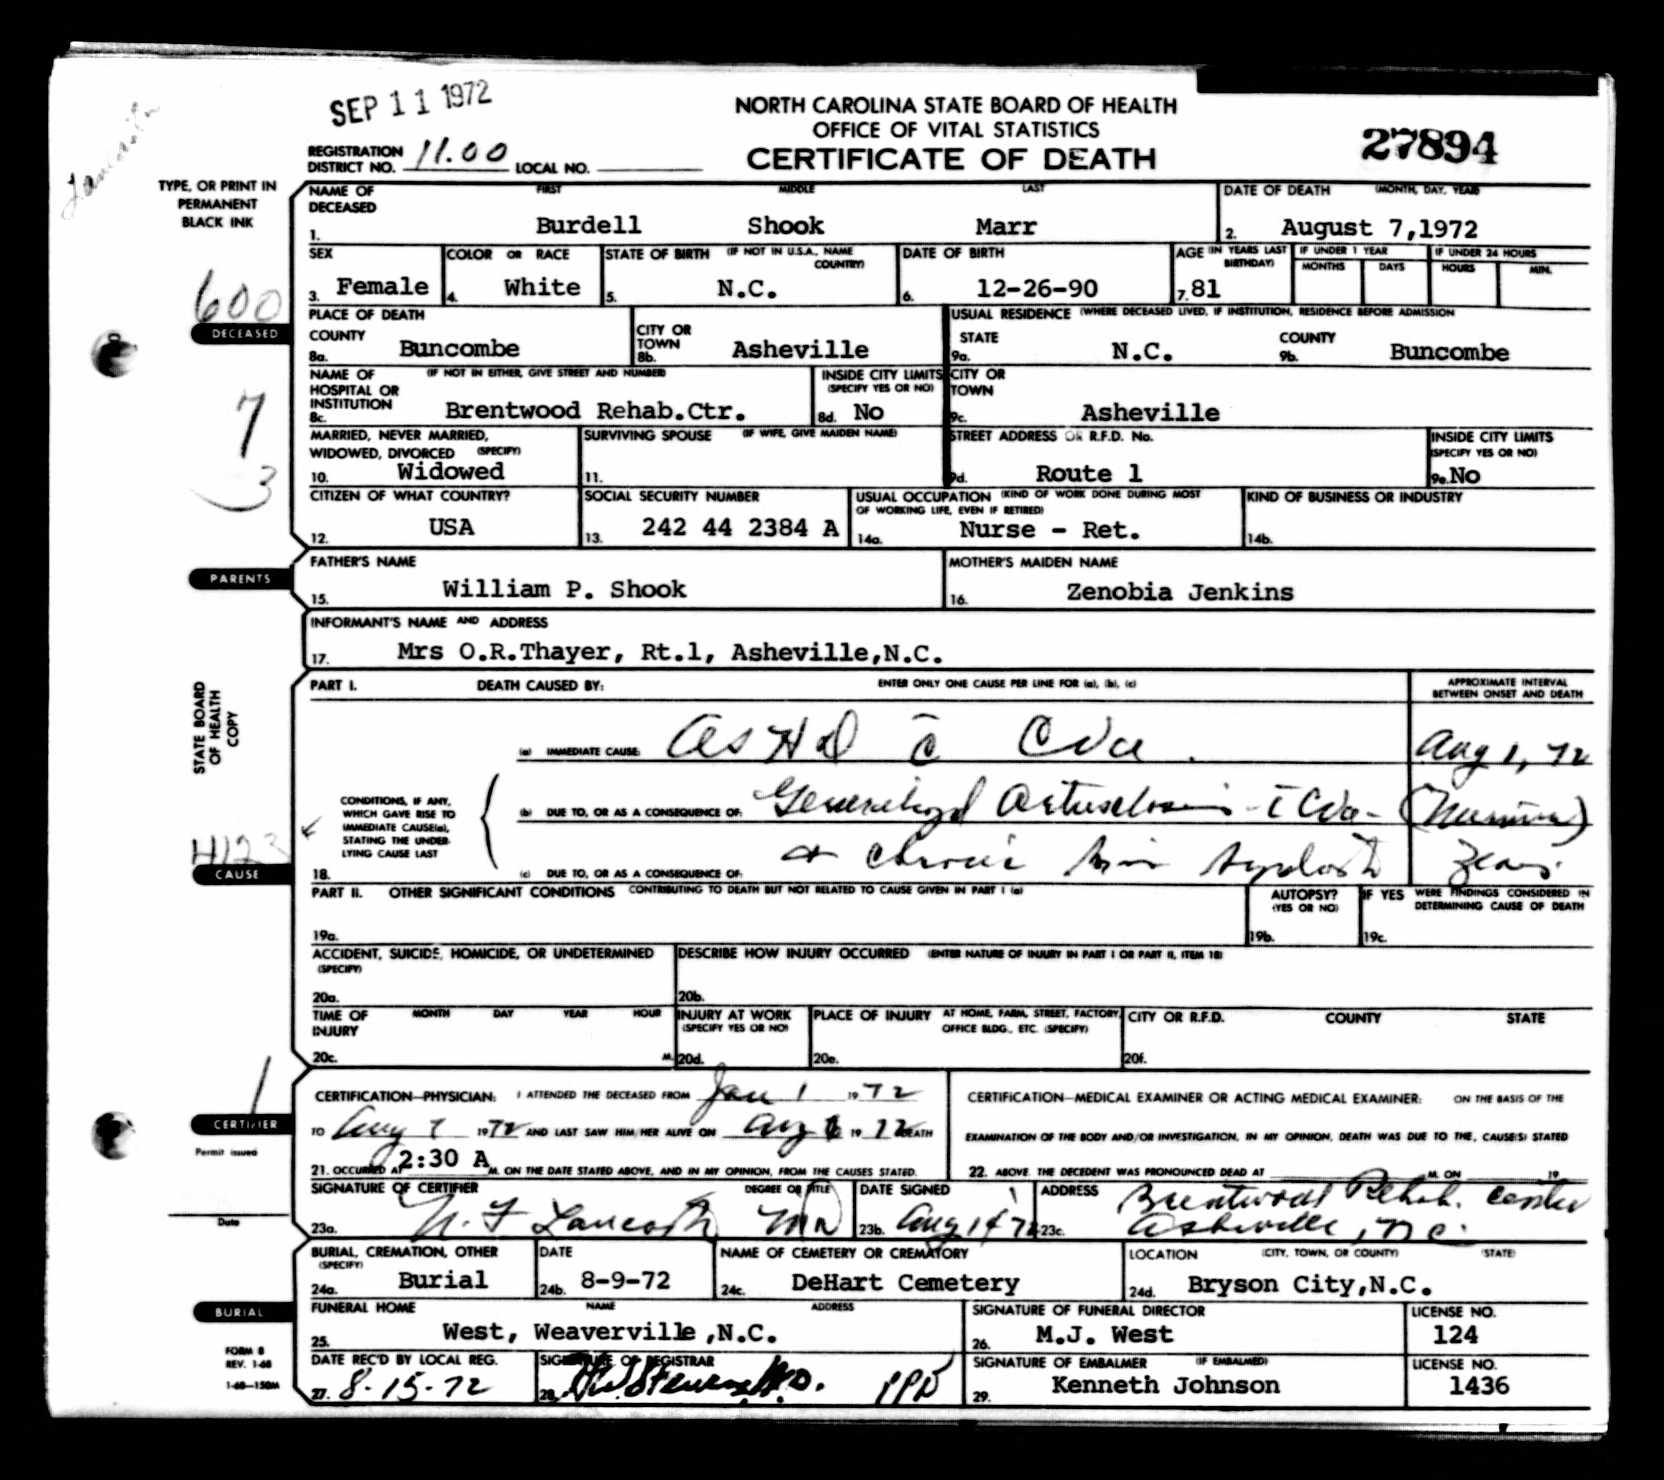 SEP 11 1972
NORTH CAROLINA STATE BOARD OF HEALTH
OFFICE OF VITAL STATISTICS
CERTIFICATE OF DEATH
27894
REGISTRATION
DISTRICT NO. 11.00 LOCAL NO.
TYPE, OR PRINT IN
PERMANENT
BLACK INK
NAME OF DECEASED FIRST MIDDLE LAST
1. Burdell Shook Marr
DATE OF DEATH (MONTH, DAY, YEAR)
2. August 7,1972
SEX
3. Female
COLOR OR RACE
4. White
STATE OF BIRTH (IF NOT IN U.S.A., NAME COUNTRY)
5. N.C.
DATE OF BIRTH
6. 12-26-90
AGE (IN YEARS LAST BIRTHDAY)
7. 81
IF UNDER 1 YEAR
MONTHS DAYS
IF UNDER 24 HOURS
HOURS MIN.
600
DECEASED
7
3
PLACE OF DEATH
COUNTY
8a. Buncombe
CITY OR TOWN
8b. Asheville
USUAL RESIDENCE (WHERE DECEASED LIVED, IF INSTITUTION, RESIDENCE BEFORE ADMISSION
STATE
9a. N.C.
COUNTY
9b. Buncombe
NAME OF HOSPITAL OR INSTITUTION (IF NOT IN EITHER, GIVE STREET AND NUMBER)
8c. Brentwood Rehab.Ctr.
INSIDE CITY LIMITS (SPECIFY YES OR NO)
8d. No
CITY OR TOWN
9c. Asheville
MARRIED, NEVER MARRIED, WIDOWED, DIVORCED (SPECIFY)
10. Widowed
SURVIVING SPOUSE (IF WIFE, GIVE MAIDEN NAME)
11.
STREET ADDRESS OR R.F.D. No.
9d. Route 1
INSIDE CITY LIMITS (SPECIFY YES OR NO)
9e. No
CITIZEN OF WHAT COUNTRY?
12. USA
SOCIAL SECURITY NUMBER
13. 242 44 2384 A
USUAL OCCUPATION (KIND OF WORK DONE DURING MOST OF WORKING LIFE, EVEN IF RETIRED)
14a. Nurse - Ret.
KIND OF BUSINESS OR INDUSTRY
14b.
PARENTS
FATHER'S NAME
15. William P. Shook
MOTHER'S MAIDEN NAME
16. Zenobia Jenkins
INFORMANT'S NAME AND ADDRESS
17. Mrs O.R.Thayer, Rt.1, Asheville,N.C.
STATE BOARD
OF HEALTH
COPY
PART I. DEATH CAUSED BY: ENTER ONLY ONE CAUSE PER LINE FOR (a), (b), (c)
APPROXIMATE INTERVAL BETWEEN ONSET AND DEATH
(a) IMMEDIATE CAUSE: ASHD c̄ CVa Aug 1, 72
CONDITIONS, IF ANY, WHICH GAVE RISE TO IMMEDIATE CAUSE(a), STATING THE UNDER- LYING CAUSE LAST
(b) DUE TO, OR AS A CONSEQUENCE OF: Generalized c̄ CVa-
4123
CAUSE
18. (c) DUE TO, OR AS A CONSEQUENCE OF: + chronic
PART II. OTHER SIGNIFICANT CONDITIONS CONTRIBUTING TO DEATH BUT NOT RELATED TO CAUSE GIVEN IN PART I (a)
19a.
AUTOPSY? (YES OR NO)
19b.
IF YES WERE FINDINGS CONSIDERED IN DETERMINING CAUSE OF DEATH
19c.
ACCIDENT, SUICIDE, HOMICIDE, OR UNDETERMINED (SPECIFY)
20a.
DESCRIBE HOW INJURY OCCURRED (ENTER NATURE OF INJURY IN PART I OR PART II, ITEM 18)
20b.
TIME OF INJURY MONTH DAY YEAR HOUR
20c. M.
INJURY AT WORK (SPECIFY YES OR NO)
20d.
PLACE OF INJURY AT HOME, FARM, STREET, FACTORY, OFFICE BLDG., ETC. (SPECIFY)
20e.
CITY OR R.F.D. COUNTY STATE
20f.
CERTIFICATION—PHYSICIAN: I ATTENDED THE DECEASED FROM Jan 1 1972
TO Aug 7 1972 AND LAST SAW HIM/HER ALIVE ON Aug 1972 DEATH
21. OCCURRED AT 2:30 A M. ON THE DATE STATED ABOVE, AND IN MY OPINION, FROM THE CAUSES STATED.
CERTIFICATION—MEDICAL EXAMINER OR ACTING MEDICAL EXAMINER: ON THE BASIS OF THE
EXAMINATION OF THE BODY AND/OR INVESTIGATION, IN MY OPINION, DEATH WAS DUE TO THE, CAUSE(S) STATED
22. ABOVE. THE DECEDENT WAS PRONOUNCED DEAD AT M. ON 19
CERTIFIER
Permit issued
Date
SIGNATURE OF CERTIFIER DEGREE OR TITLE
23a. MD
DATE SIGNED
23b. Aug 14 72
ADDRESS
23c. Brentwood Rehab. Center
Asheville, N.C.
BURIAL, CREMATION, OTHER (SPECIFY)
24a. Burial
DATE
24b. 8-9-72
NAME OF CEMETERY OR CREMATORY
24c. DeHart Cemetery
LOCATION (CITY, TOWN, OR COUNTY) (STATE)
24d. Bryson City,N.C.
BURIAL
FUNERAL HOME NAME ADDRESS
25. West, Weaverville ,N.C.
SIGNATURE OF FUNERAL DIRECTOR
26. M.J. West
LICENSE NO.
124
FORM 8
REV. 1-68
1-68—150M
DATE REC'D BY LOCAL REG.
27. 8-15-72
SIGNATURE OF REGISTRAR
28.
SIGNATURE OF EMBALMER (IF EMBALMED)
29. Kenneth Johnson
LICENSE NO.
1436